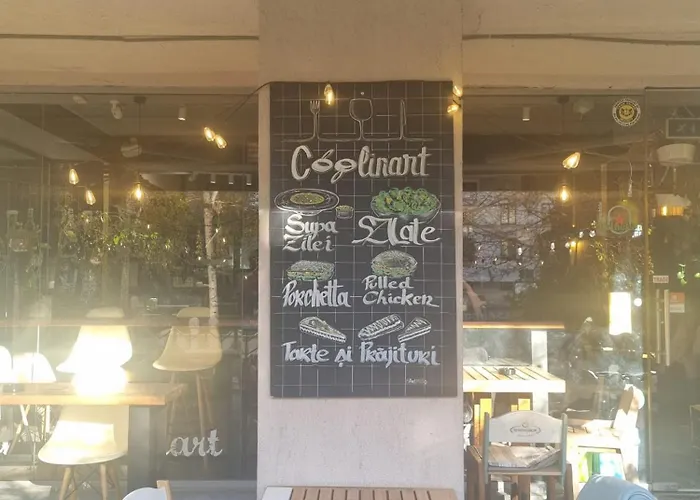 Coolinart
Supa
Zilei
Salate
Porchetta
Polled
Chicken
Tarte și Prăjituri
.art